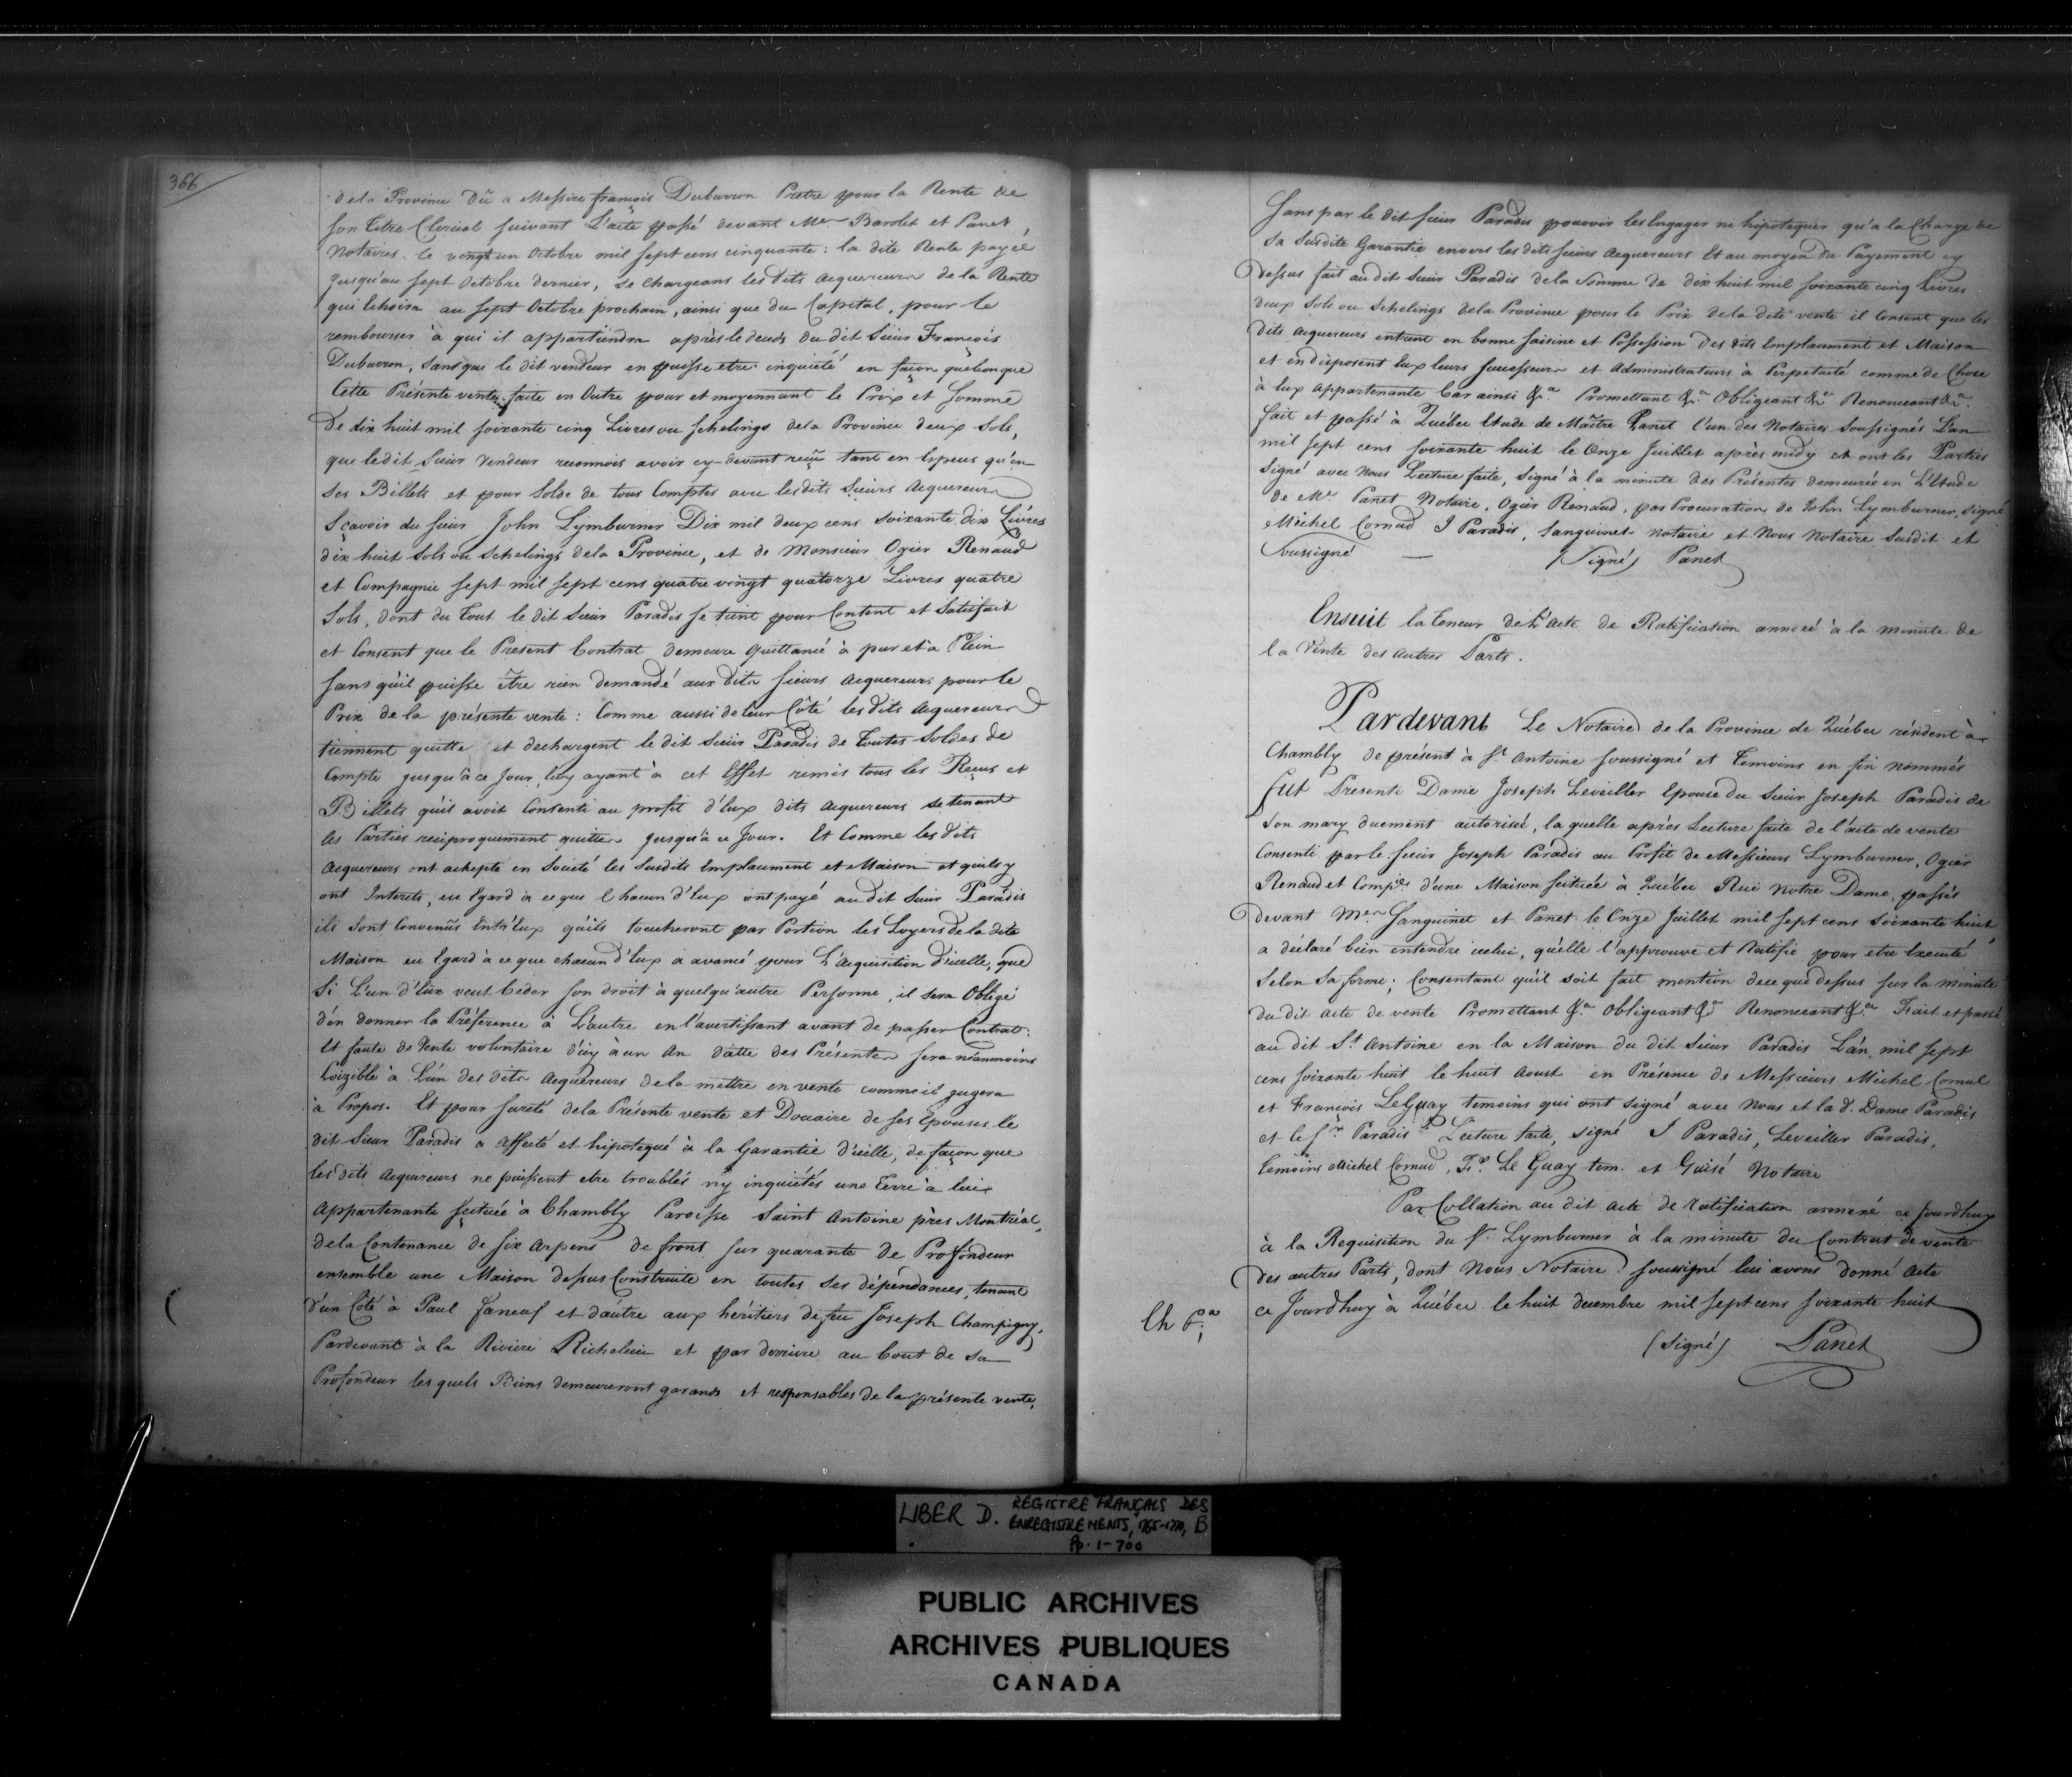 366
dela Province Dû a Messire françois Duburon Pretre pour la Rente de
son Titre Clerical suivant L'acte passé devant Mes Barolet et Panet
Notaires le vingt un Octobre mil sept cens cinquante : la dite Rente payée
jusqu'au sept Octobre dernier, se Chargeans les dits acquereurs de la Rente
qui Echoira au sept Octobre prochain, ainsi que du Capital, pour le
rembourser à qui il appartiendra après le deces du dit Sieur François
Duburon, sans que le dit vendeur en puisse etre inquiété en façon quelconque
Cette Présente vente faite en Outre pour et moyennant le Prix et Somme
De dix huit mil soixante cinq Livres ou Schelings dela Province deux Sols,
que ledit Sieur Vendeur reconnois avoir cy-devant reçû tant en Especes qu'en
Ses Billets et pour Solde de tous Comptes avec lesdits Sieurs Acquereurs
Sçavoir du sieur John Lymburner Dix mil deux cens soixante dix Livres
dix huit Sols ou Schelings dela Province, et de Monsieur Ogier Renaud
et Compagnie sept mil sept cens quatre vingt quatorze Livres quatre
Sols, dont du Tout le dit Sieur Paradis se tient pour Content et Satisfait
et Consent que le Present Contrat demeure quittancé à pur et à Plein
sans qu'il puisse être rien demandé aux dits sieurs acquereurs pour le
Prix de la présente vente : Comme aussi de leur Côté les dits Acquereurs
tiennent quitte et dechargent le dit Sieur Paradis de Toutes Soldes de
Compte jusqu'à ce Jour, luy ayant à cet Effet remis tous les Reçus et
Billets qu'il avoit Consenti au profit d'Eux dits acquereurs se tenant
les Parties reciproquement quittes jusqu'à ce Jour. Et Comme les dits
acquereurs ont achepté en Societé les Susdits Emplacement et Maison et qu'ils y
ont Interets, eu Egard à ce que Chacun d'Eux ont payé au dit Sieur Paradis
ils sont Convenûs Entr'Eux qu'ils toucheront par Portion les Loyers de la dite
Maison eu Egard à ce que chacun d'Eux a avancé pour L'acquisition d'icelle, que
Si L'un d'Eux veut Ceder son droit à quelqu'autre Personne, il sera Obligé
d'en donner la Préference à L'autre en l'avertissant avant de passer Contrat :
Et faute de Vente volontaire d'icy à un An datte des Présentes sera néanmoins
Loizible à L'un des dits Acquéreurs dela mettre en vente comme il jugera
à Propos. Et pour sureté dela Présente vente et Douaire de ses Epouses le
dit Sieur Paradis a affecté et hipotequé à la Garantie d'icelle, de façon que
les dits Acquereurs ne puissent etre troublés n'y inquiétés une Terre à lui
Appartenante scituée à Chambly Paroisse Saint Antoine près Montréal,
dela Contenance de six arpens de front sur quarante de Profondeur
ensemble une Maison dessus Construite en toutes ses dépendances, tenant
d'un Côté à Paul faneuf et d'autre aux héritiers de feu Joseph Champigny,
Pardevant à la Riviere Richelieu et par derriere au bout de sa
Profondeur lesquels Biens demeureront garands et responsables de la présente vente,
Sans par le dit sieur Paradis pouvoir les Engager ni hipotequer qu'a la Charge de
sa susdite Garantie envers les dits sieurs acquereurs Et au moyen du Payement cy
dessus fait au dit Sieur Paradis dela Somme de dix huit mil soixante cinq Livres
deux Sols ou Schelings dela Province pour le Prix de la dite vente il Consent que les
dits acquereurs entrent en bonne saisine et Possession des dits Emplacement et Maison
et en disposent Eux leurs successeurs et Administrateurs à Perpetuité comme de Chose
à Eux appartenante Car ainsi &a. Promettant &a. Obligeant &a Renonceant &a.
fait et passé à Québec Etude de Maître Panet l'un des Notaires Soussignés L'an
mil sept cens soixante huit le Onze Juillet après midy et ont les Parties
Signé avec Nous Lecture faite, Signé à la minute des Présentes demeurée en L'Etude
de Me Panet Notaire, Ogier Renaud, par Procuration de John Lymburner, signé
Michel Cornud J Paradis, Sanguinet notaire et Nous Notaire Susdit et
Soussigné — (Signé) Panet
Ensuit la Teneur de L'acte de Ratification annexé à la minute de
la Vente des autres Parts.
Pardevant Le Notaire de la Province de Québec résident à
Chambly de présent à St. Antoine soussigné et Temoins en fin nommés
fut Presente Dame Joseph Leveiller Epouse du Sieur Joseph Paradis de
son mary duement autorisée, la quelle après Lecture faite de l'acte de vente
Consenti par le sieur Joseph Paradis au Profit de Messieurs Lymburner, Ogier
Renaud et Compie d'une Maison scituée à Québec Rüe Notre Dame, passés
devant Mes Sanguinet et Panet le Onze Juillet mil sept cens soixante huit
a déclaré bien entendre icelui, qu'elle l'approuve et Ratifie pour etre Executé
Selon Sa forme ; Consentant qu'il soit fait mention de ce que dessus sur la minute
du dit acte de vente Promettant &a Obligeant &a Renonceant &a Fait et passé
au dit St. Antoine en la Maison du dit Sieur Paradis L'an mil sept
cens soixante huit le huit Aoust en Présence de Messieurs Michel Cornud
et François LeGuay temoins qui ont signé avec Nous et la d. Dame Paradis
et le sr. Paradis Lecture faite, signé J Paradis, Leveiller Paradis,
temoins Michel Cornud, Frs. Le Guay tem. et Grisé Notaire
Par Collation au dit acte de ratification annexé ce jourdhuy
à la Requisition du sr. Lymburner à la minute du Contrat de vente
des autres Parts, dont Nous Notaire soussigné lui avons donné Acte
ce Jourdhuy à Québec le huit decembre mil sept cens soixante huit
(Signé) Panet
LIBER D. REGISTRE FRANÇAIS DES
ENREGISTREMENTS, 1765-1770, B
Pp. 1-700
PUBLIC ARCHIVES
ARCHIVES PUBLIQUES
CANADA